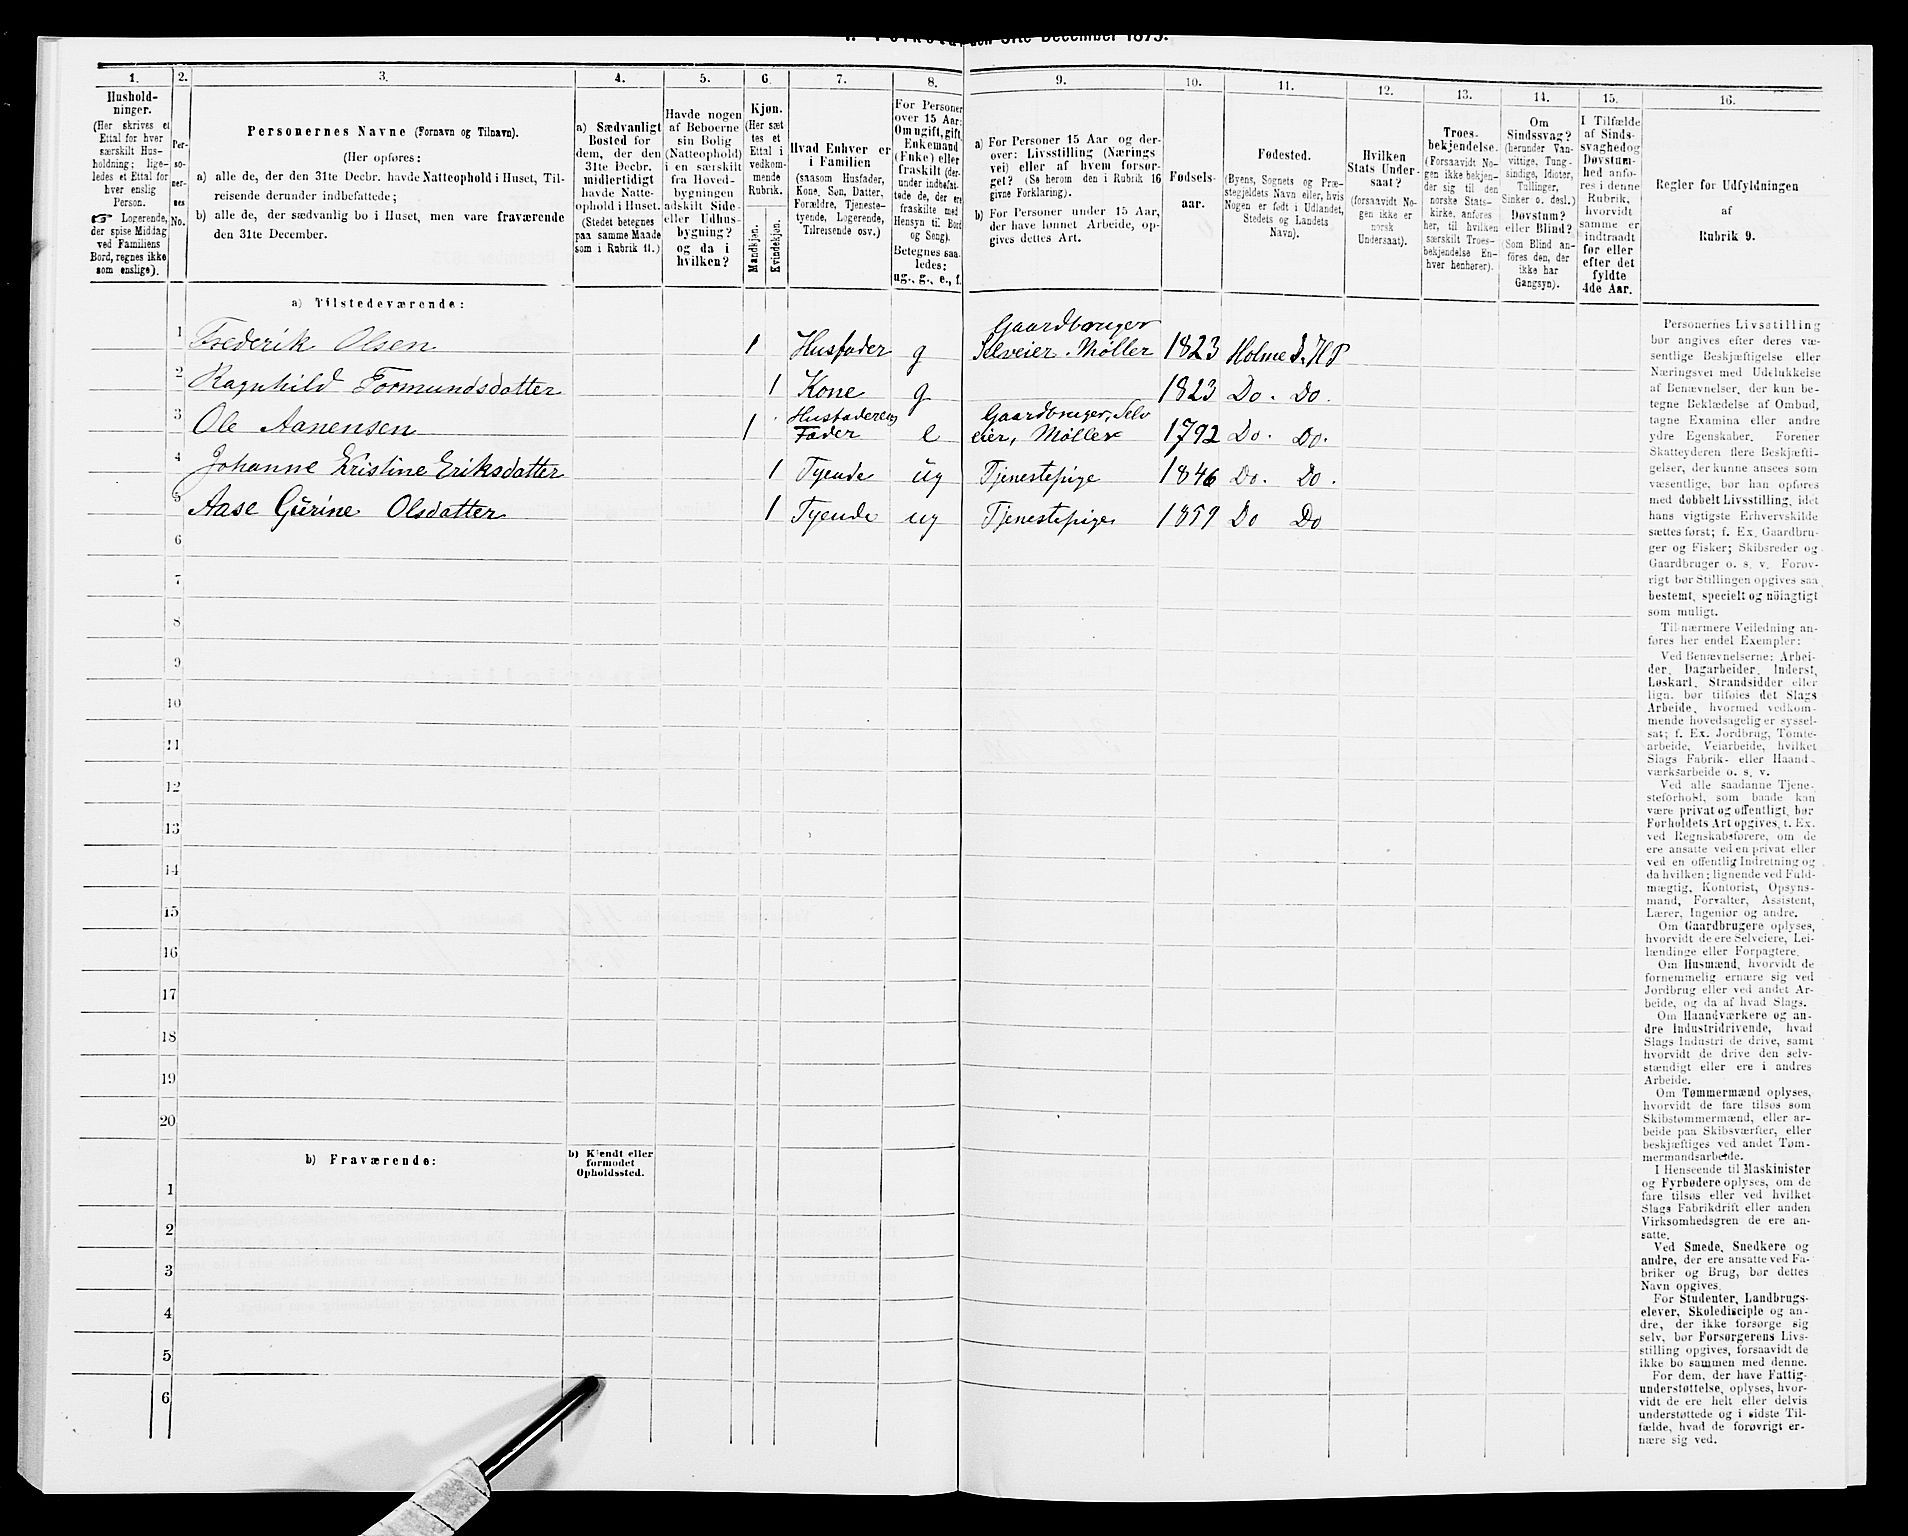 den 31te December 1875.
1.
2.
3.
4.
5.
6.
7.
8.
9.
10.
11.
12.
13.
14.
15.
16.
Hushold-
ninger.
(Her skrives et
Ettal for hver
særskilt Hus-
holdning; lige-
ledes et Ettal for
hver enslig
Person.
☞ Logerende,
der spise Middag
ved Familiens
Bord, regnes ikke
som enslige).
Per-
so-
ner-
nes
No.
Personernes Navne (Fornavn og Tilnavn).
(Her opføres:
a) alle de, der den 31te Decbr. havde Natteophold i Huset, Til-
reisende derunder indbefattede;
b) alle de, der sædvanlig bo i Huset, men vare fraværende
den 31te December.
a) Sædvanligt
Bosted for
dem, der den
31te Decbr.
midlertidigt
havde Natte-
ophold i Huset.
(Stedet betegnes
paa samme Maade
som i Rubrik 11.)
Havde nogen
af Beboerne
sin Bolig
(Natteophold)
i en særskilt
fra Hoved-
bygningen
adskilt Side-
eller Udhus-
bygning?
og da i
hvilken?
Kjøn.
(Her sæt-
tes et
Ettal i
vedkom-
mende
Rubrik.
Mandkjøn.
Kvindekjøn.
Hvad Enhver er
i Familien
(saasom Husfader,
Kone, Søn, Datter,
Forældre, Tjeneste-
tyende, Logerende,
Tilreisende osv.)
For Personer
over 15 Aar:
Om ugift, gift,
Enkemand
(Enke) eller
fraskilt (der-
under indbefat-
tede de, der ere
fraskilte med
Hensyn til Bord
og Seng).
Betegnes saa-
ledes:
ug., g., e., f.
a) For Personer 15 Aar og der-
over: Livsstilling (Nærings-
vei) eller af hvem forsør-
get? (Se herom den i Rubrik 16
givne Forklaring).
b) For Personer under 15 Aar,
der have lønnet Arbeide, op-
gives dettes Art.
Fødsels-
aar.
Fødested.
(Byens, Sognets og Præ-
stegjeldets Navn eller, hvis
Nogen er født i Udlandet,
Stedets og Landets
Navn).
Hvilken
Stats Under-
saat?
(forsaavidt No-
gen ikke er
norsk
Undersaat).
Troes-
bekjendelse.
(Forsaavidt No-
gen ikke bekjen-
der sig til den
norske Stats-
kirke, anføres
her, til hvilken
særskilt Troes-
bekjendelse En-
hver henhører).
Om
Sindssvag?
(herunder Van-
vittige, Tung-
sindige, Idioter,
Tullinger,
Sinker o. desl.)
Døvstum?
eller Blind?
(Som Blind an-
føres den, der
ikke har
Gangsyn).
I Tilfælde
af Sinds-
svaghed og
Døvstum-
hed anfø-
res i denne
Rubrik,
hvorvidt
samme er
indtraadt
før eller
efter det
fyldte
4de Aar.
Regler før Udfyldningen
af
Rubrik 9.
a) Tilstedeværende:
1 Frederik Olsen 1 Husfader g Gaardbruger
Selveier. Møller 1823 Holme S. H P
2 Ragnhild Tormundsdatter 1 Kone g 1823 Do. Do.
3 Ole Aanensen 1 Husfaderens
Fader e Gaardbruger, Selv
eier, Møller 1792 Do. Do.
4 Johanne Kristine Eriksdatter 1 Tyende ug Tjenestepige 1846 Do. Do.
5 Aase Gurine Olsdatter 1 Tyende ug Tjenestepige 1859 Do Do
6
7
8
9
10
11
12
13
14
15
16
17
18
19
20
b) Fraværende:
b) Kjendt eller
formodet
Opholdssted.
1
2
3
4
5
6
Personernes Livsstilling
bør angives efter deres væ-
sentlige Beskjæftigelse eller
Næringsvei med Udelukkelse
af Benævnelser, der kun be-
tegne Beklædelse af Ombud,
tagne Examina eller andre
ydre Egenskaber. Forener
Skatteyderen flere Beskjæfti-
gelser, der kunne ansees som
væsentlige, bør han opføres
med dobbelt Livsstilling, idet
hans vigtigste Erhvervskilde
sættes først; f. Ex. Gaardbru-
ger og Fisker; Skibsreder og
Gaardbruger o. s. v. Forøv-
rigt bør Stillingen opgives saa
bestemt, specielt og nöiagtigt
som muligt.
Til nærmere Veiledning an-
føres her endel Exempler:
Ved Benævnelserne: Arbei-
der, Dagarbeider, Inderst,
Løskarl, Strandsidder eller
lign. bør tilføies det Slags
Arbeide, hvormed vedkom-
mende hovedsagelig er syssel-
sat; f. Ex. Jordbrug, Tomte-
arbeide, Veiarbeide, hvilket
Slags Fabrik- eller Haand-
værksarbeide o. s. v.
Ved alle saadanne Tjene-
steforhold, som baade kan
være privat og offentligt, bør
Forholdets Art opgives, t. Ex.
ved Regnskabsførere, om de
ere ansatte ved en privat eller
ved en offentlig Indretning og
da hvilken; lignende ved Fuld-
mægtig, Kontorist, Opsyns-
mand, Forvalter, Assistent,
Lærer, Ingeniør og andre.
Om Gaardbrugere oplyses,
hvorvidt de ere Selveiere, Lei-
lændinge eller Forpagtere.
Om Husmænd, hvorvidt de
fornemmelig ernære sig ved
Jordbrug eller ved andet Ar-
beide, og da af hvad Slags.
Om Haandværkere og an-
dre Industridrivende, hvad
Slags Industri de drive, samt
hvorvidt de drive den selv-
stændigt eller ere i andres
Arbeide.
Om Tømmermænd oplyses,
hvorvidt de fare tilsøs som
Skibstømmermænd, eller ar-
beide paa Skibsværfter, eller
beskjæftiges ved andet Tøm-
mermandsarbeide.
I Henseende til Maskinister
og Fyrbødere oplyses, om de
fare tilsøs eller ved hvilket
Slags Fabrikdrift eller anden
Virksomhedsgren de ere an-
satte.
Ved Smede, Snedkere og
andre, der ere ansatte ved Fa-
briker og Brug, bør dettes
Navn opgives.
For Studenter, Landbrugs-
elever, Skoledisciple og an-
dre, der ikke forsørge sig
selv, bør Forsørgerens Livs-
stilling opgives, forsaavidt de
ikke bo sammen med denne.
For dem, der have Fattig-
understøttelse, oplyses, hvor-
vidt de ere helt eller delvis
understøttede og i sidste Til-
fælde, hvad de forøvrigt er-
nære sig ved.